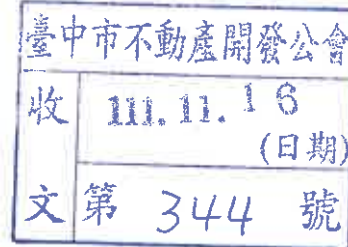 臺中市不動產開發公會
收 111.11.16
(日期)
文 第 344 號